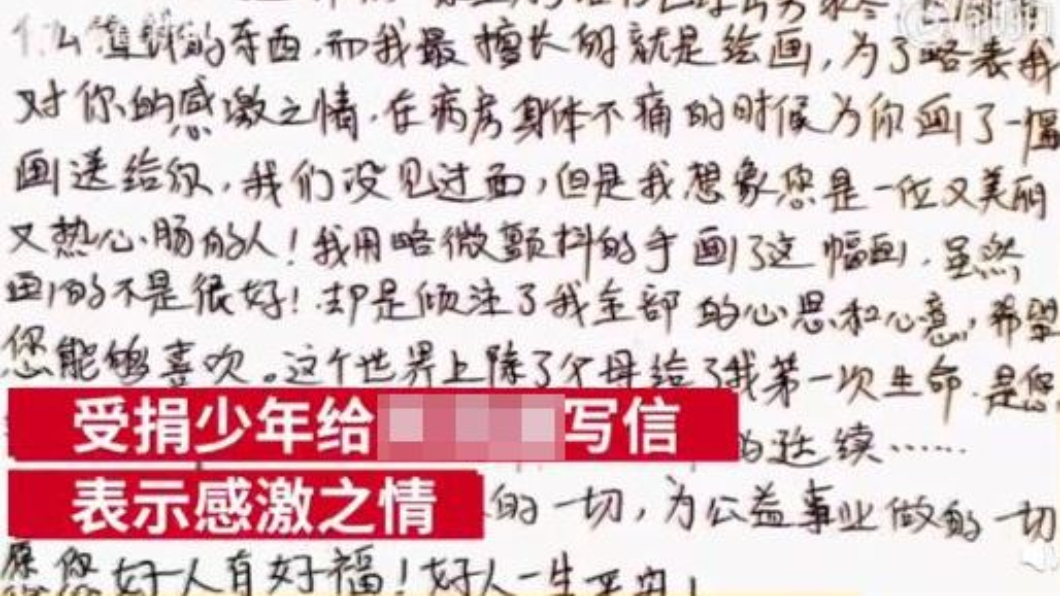 的东西,而我最擅长的就是绘画,为了略表我
对你的感激之情,在病房身体不痛的时候为你画了一幅
画送给你,我们没见过面,但是我想象您是一位又美丽
又热心肠的人!我用略微颤抖的手画了这幅画,虽然
画的不是很好!却是倾注了我全部的心思和心意,希望
您能够喜欢。这个世界上除了父母给了我第一次生命,是您
受捐少年给 写信
的延续……
表示感激之情
的一切,为公益事业做的一切
愿您好人有好福!好人一生平安!